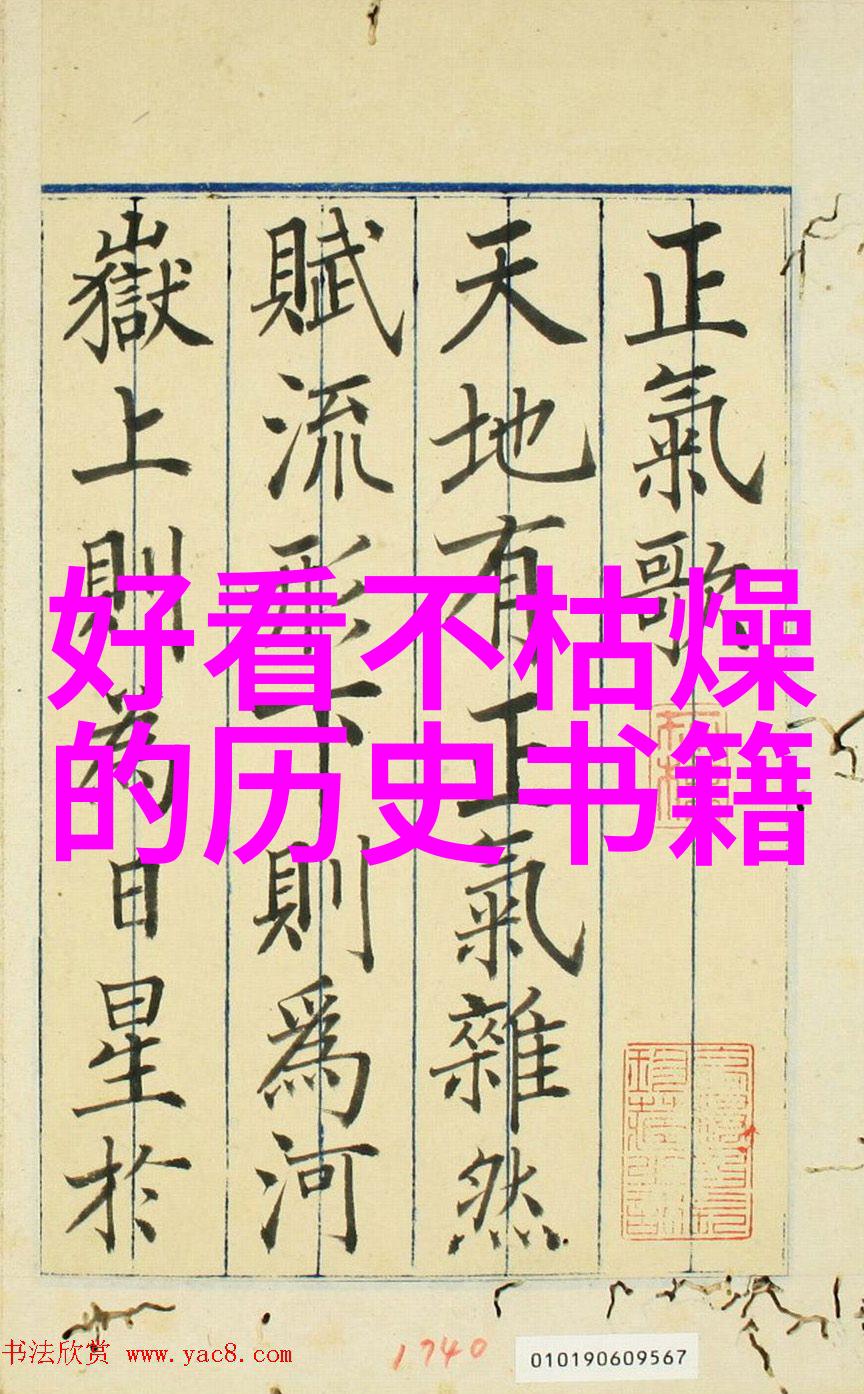 正氣歌
天地有正氣雜然
賦流形下則爲河
嶽上則為日星於
好看不枯燥
的历史书籍
书法欣赏 www.yac8.com
1740
010190609567